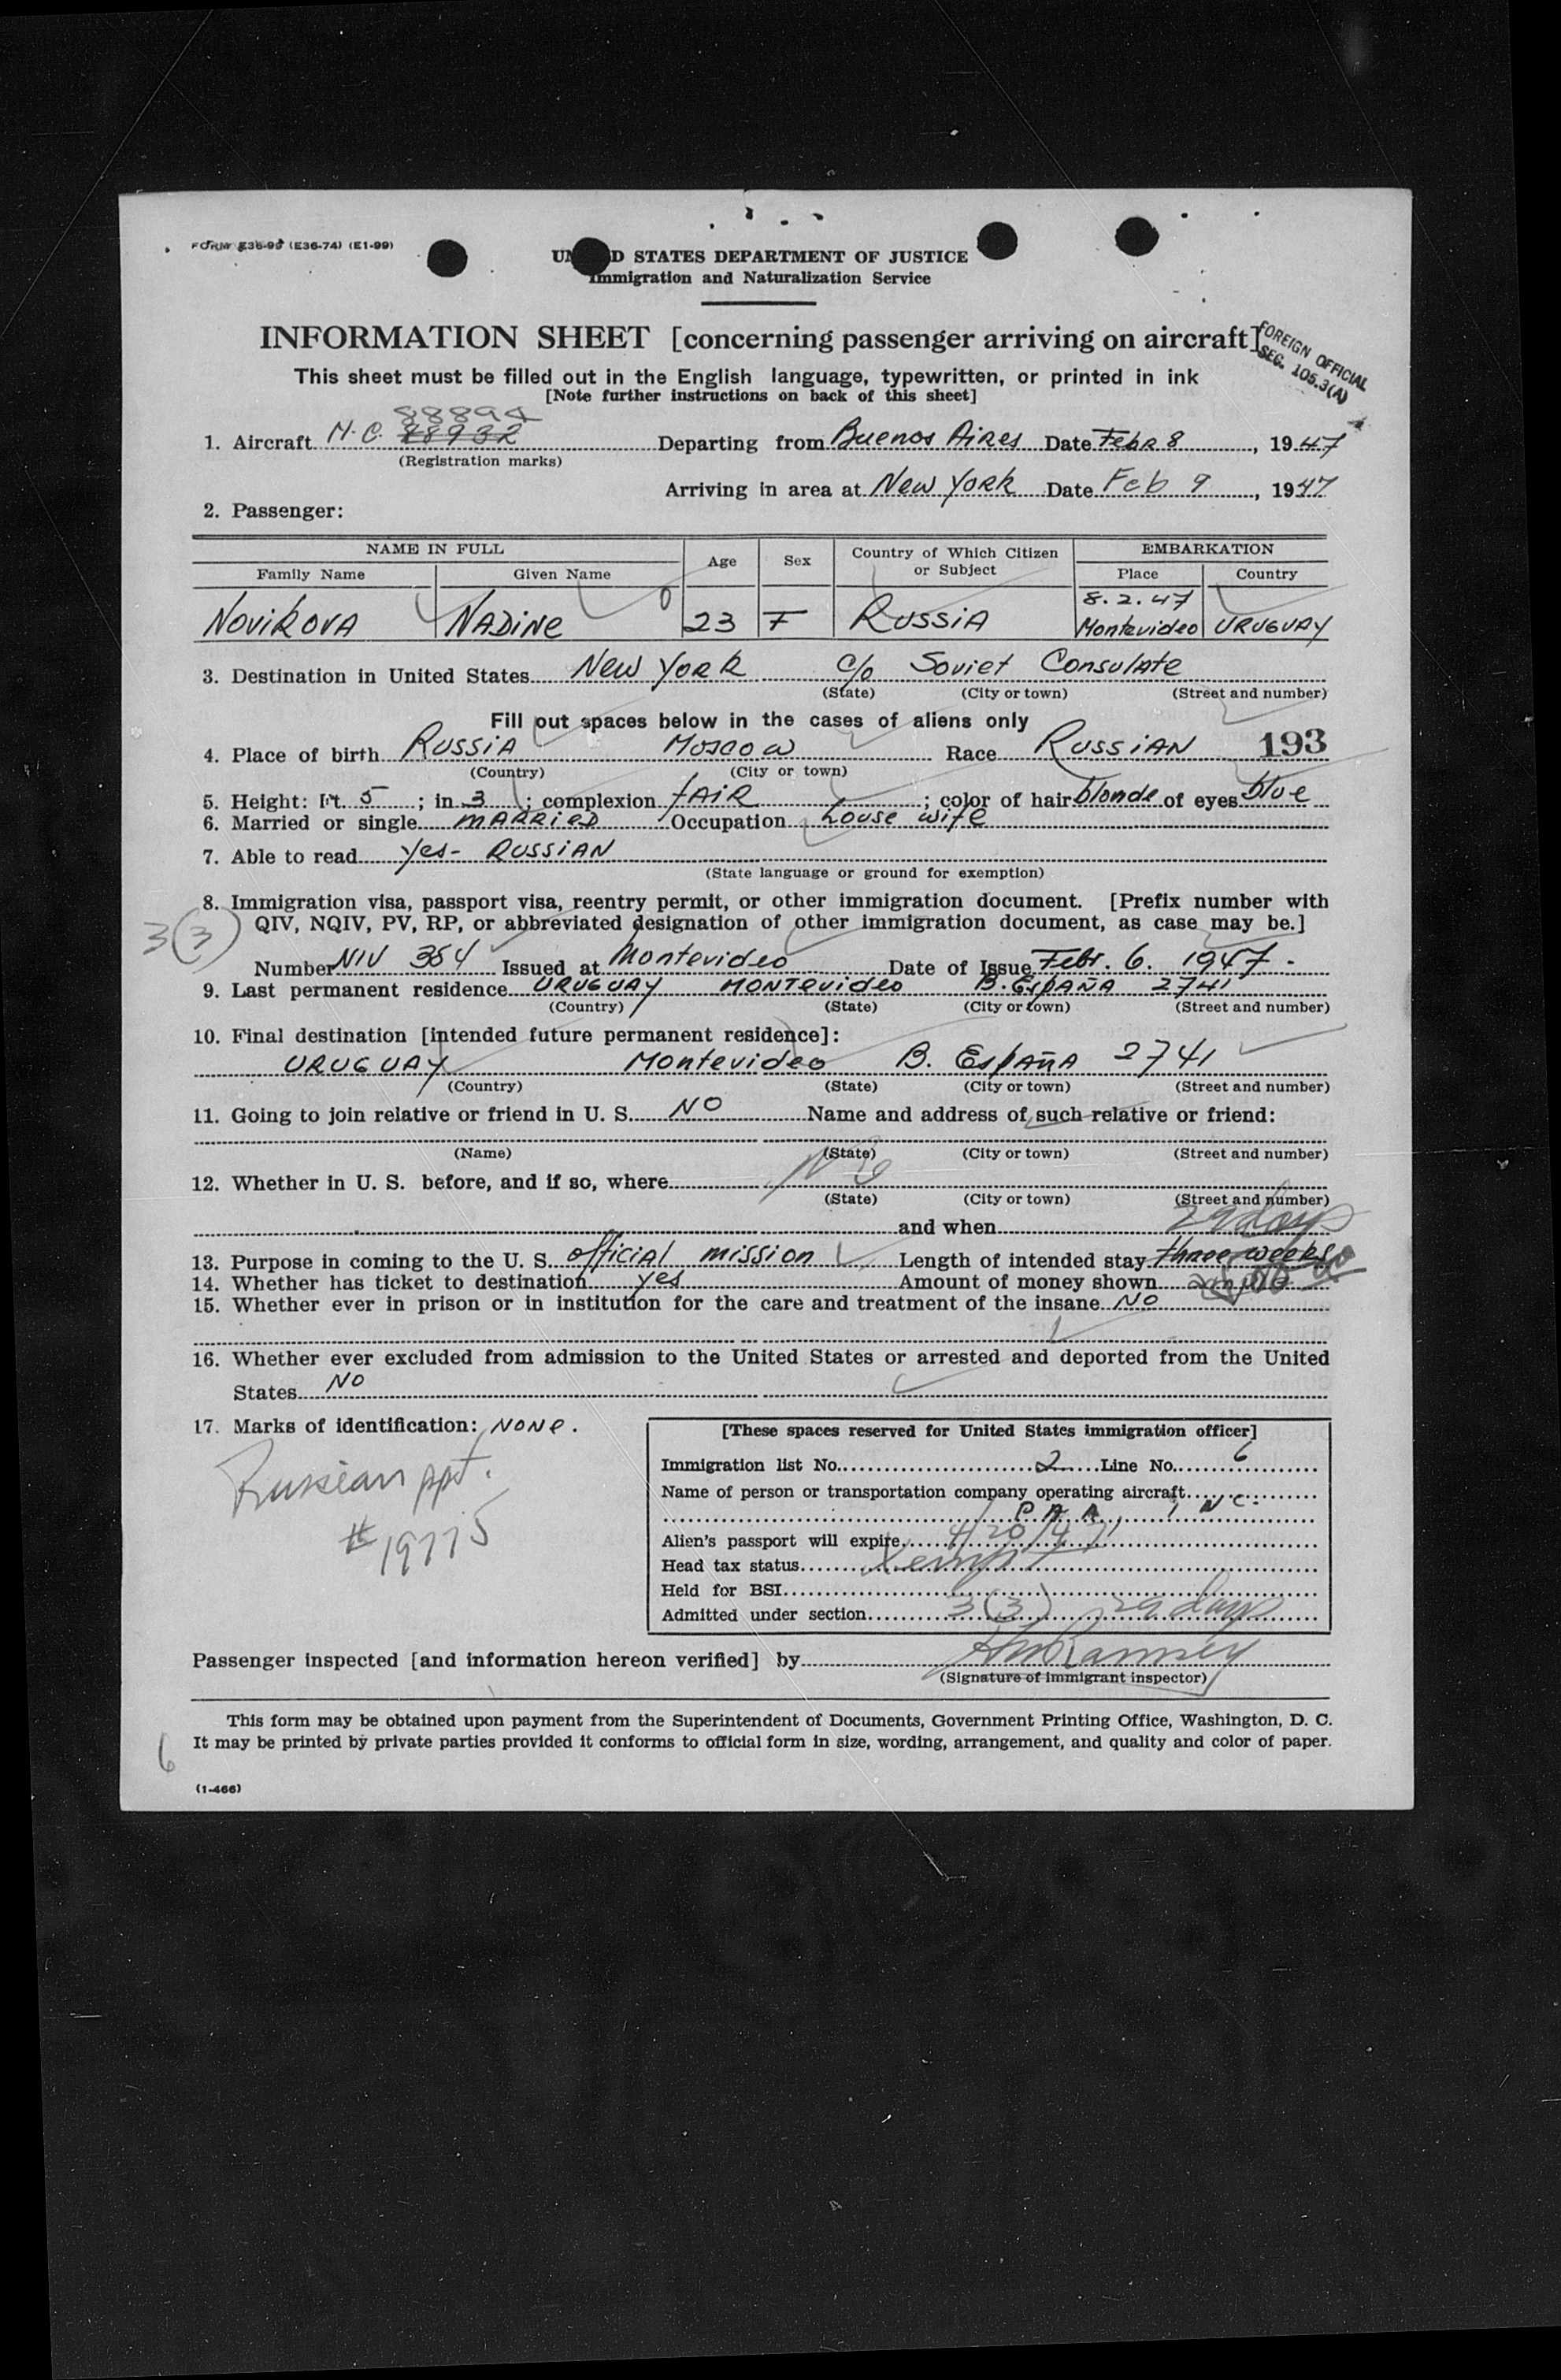 FORM E36-99 (E36-74) (E1-99)
D STATES DEPARTMENT OF JUSTICE
Immigration and Naturalization Service
INFORMATION SHEET [concerning passenger arriving on aircraft]
FOREIGN OFFICIAL
SEC. 105.3(A)
This sheet must be filled out in the English language, typewritten, or printed in ink
[Note further instructions on back of this sheet]
88894
1. Aircraft N.C. 48932 Departing from Buenos Aires Date FebR 8, 1947
(Registration marks)
Arriving in area at New York Date Feb 9, 1947
2. Passenger:
NAME IN FULL Age Sex Country of Which Citizen or Subject EMBARKATION
Family Name Given Name Place Country
8.2.47
NOVIKOVA NADINE 23 F RUSSIA Montevideo URUGUAY
3. Destination in United States New York c/o Soviet Consulate
(State) (City or town) (Street and number)
Fill out spaces below in the cases of aliens only
4. Place of birth RUSSIA Moscow Race RUSSIAN 193
(Country) (City or town)
5. Height: Ft. 5; in 3; complexion fAiR; color of hair blonde of eyes blue
6. Married or single MARRIED Occupation house wife
7. Able to read yes- RUSSIAN
(State language or ground for exemption)
8. Immigration visa, passport visa, reentry permit, or other immigration document. [Prefix number with
3(3) QIV, NQIV, PV, RP, or abbreviated designation of other immigration document, as case may be.]
Number NIV 384 Issued at Montevideo Date of Issue Febr. 6. 1947.-
9. Last permanent residence URUGUAY MONTEVIDEO B. ESPAÑA 2741
(Country) (State) (City or town) (Street and number)
10. Final destination [intended future permanent residence]:
URUGUAY Montevideo B. ESPAÑA 2741
(Country) (State) (City or town) (Street and number)
11. Going to join relative or friend in U. S. NO Name and address of such relative or friend:
(Name) (State) (City or town) (Street and number)
12. Whether in U. S. before, and if so, where No
(State) (City or town) (Street and number)
and when 29 days
13. Purpose in coming to the U. S. official mission Length of intended stay three weeks
14. Whether has ticket to destination yes Amount of money shown
15. Whether ever in prison or in institution for the care and treatment of the insane NO
16. Whether ever excluded from admission to the United States or arrested and deported from the United
States NO
17. Marks of identification: NONE.
Russian ppt.
#19775
[These spaces reserved for United States immigration officer]
Immigration list No. 2 Line No. 6
Name of person or transportation company operating aircraft
P A A, INC.
Alien's passport will expire 4/20/47
Head tax status Xempt
Held for BSI
Admitted under section 3(3) 29 days
Passenger inspected [and information hereon verified] by Ramsey
(Signature of immigrant inspector)
This form may be obtained upon payment from the Superintendent of Documents, Government Printing Office, Washington, D. C.
It may be printed by private parties provided it conforms to official form in size, wording, arrangement, and quality and color of paper.
6
(1-466)